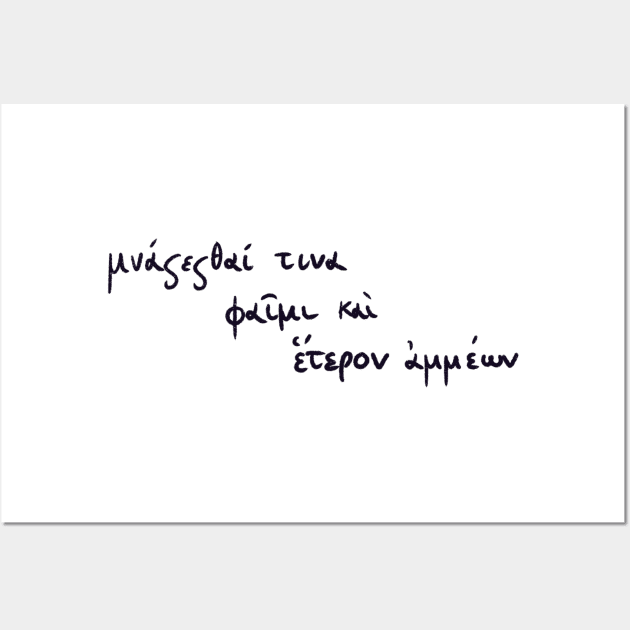 μνάςεςθαί τινα
φαῖμι καὶ
ἔτερον ἀμμέων